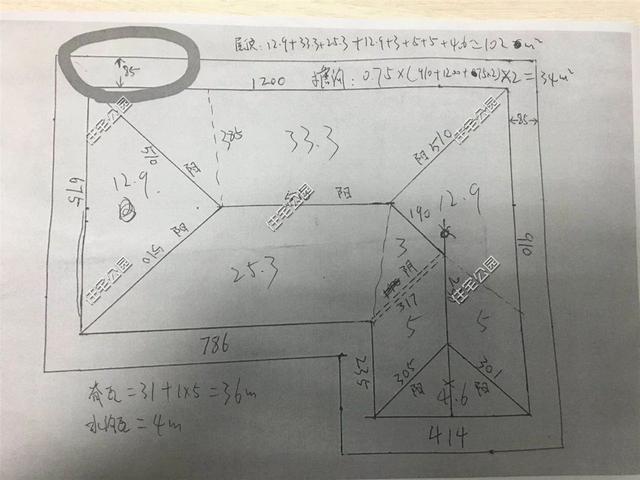 12.9+33.3+25.3+12.9+3+5+5+4.6=102 m²
85
1200
0.75×(910+1200+0.75×2)×2=34m²
住宅公园
510
阳
385
33.3
阳
510
85
675
12.9
住宅公园
阳
阳
190
12.9
住宅公园
510
阳
25.3
3
阴
住宅公园
910
317
5
5
786
235
305
阳
阳
301
4.6
脊瓦=31+1×5=36m
=4m
414